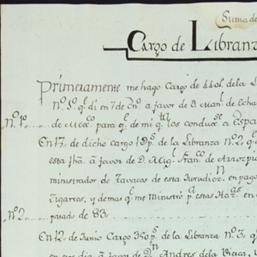 Suma de
Cargo de Libranz
Primeramente me hago Cargo de 440 p. de la L
N.º 1.º q.e di en 7 de En.º a favor de D. Man.l de Echa
N.º 1.º de Mexco para q.e de mi q.ta los conduxese a Espa
En 17 de dicho cargo 19 p.s de la Libranza N.º 2.º q.e
esta fha a favor de D. Mig.l Fran.co de Arizpu
ministrador de Tavacos de esta Jurisdic.n en pago
Cigarros, y demas q.e me ministró p.a estas Haz.s en
N.º 2.º pasado de 83
En 12 de Junio Cargo 350 p.s de la Libranza N.º 3, q
en ese dia a favor de D.n Andres de la Braga, y